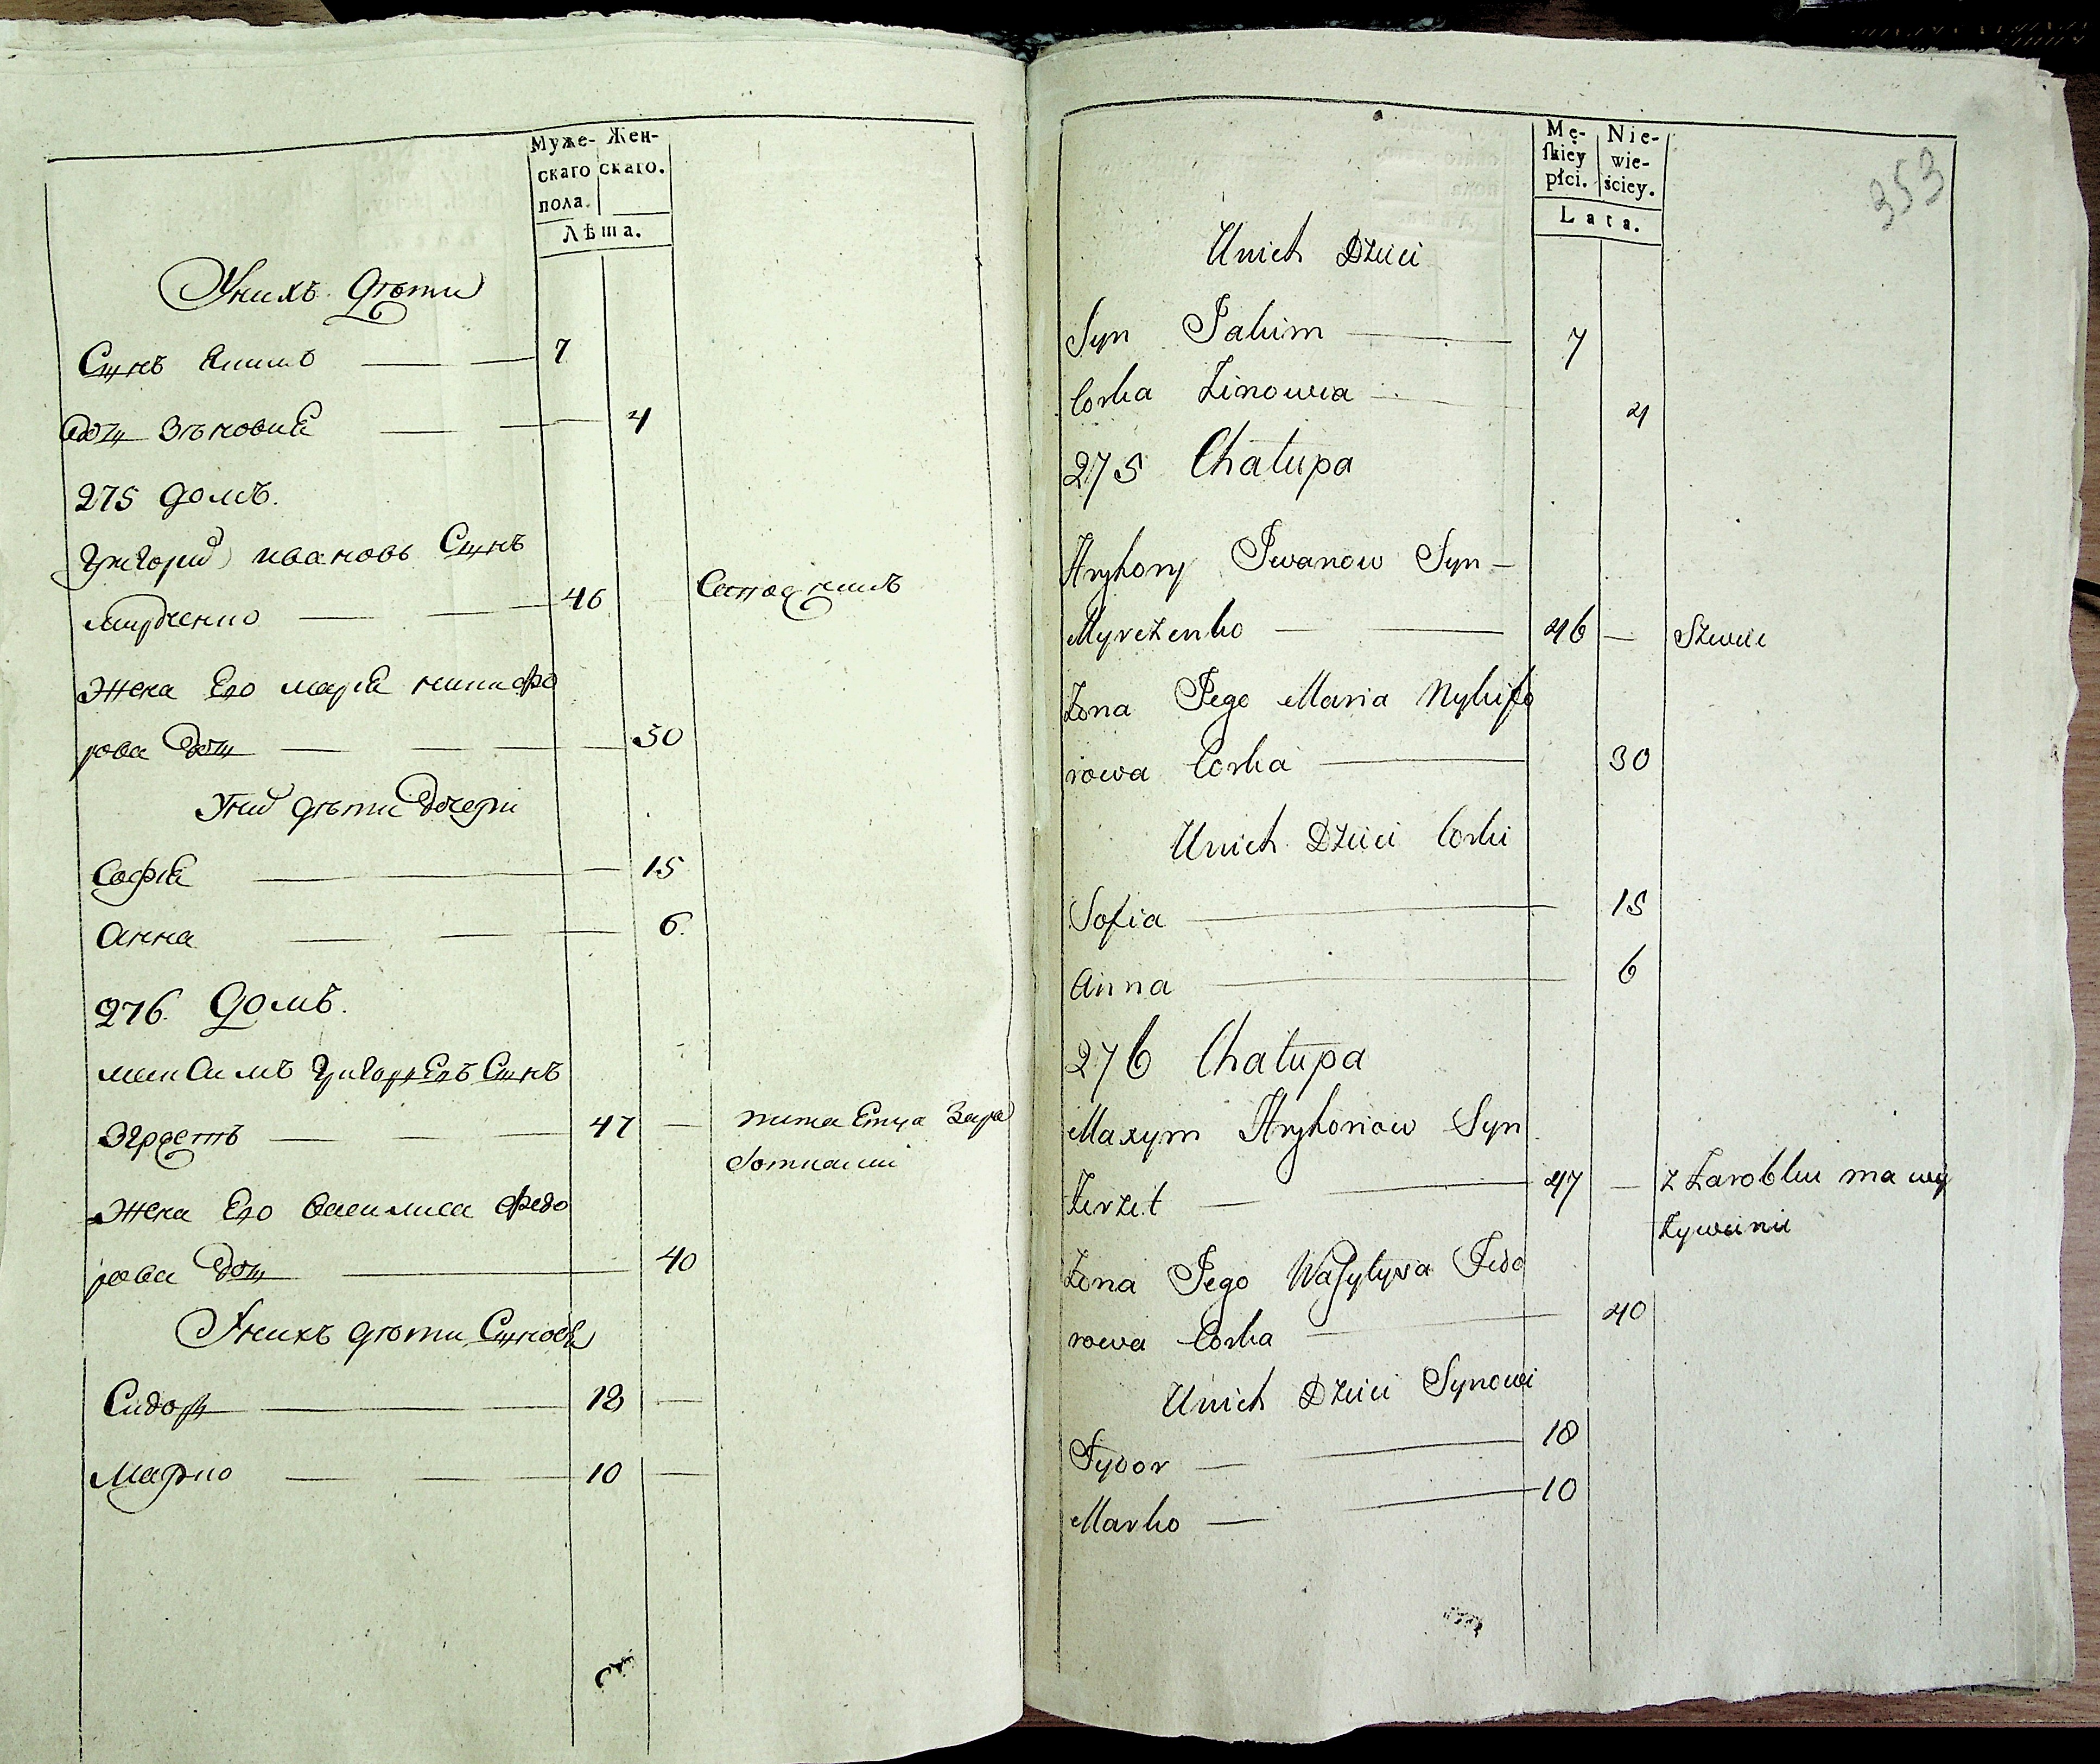 Муже- Жен-
скаго скаго.
пола.
Лѣта.
Унихъ Дѣти
Сынъ Якимъ 7
Дощ Зѣновия 4
275 Домъ.
Григорий Ивановъ Сынъ
Мирченко 46 Сапожникъ
Жена Его Мария Никифо
рова Дощ 30
У них дѣти Дочери
София 15
Анна 6
276. Домъ.
Максимъ Григориевъ Сынъ
47 — питаеться Зара
ботками
Жена Его Василиса Федо
рова Дощ 40
Унихъ дѣти Сыновья
Сидор 18 —
Марко 10 —
353
Mę- Nie-
ſkiey wie-
płci. ściey.
Lata.
Unich Dzieci
Syn Jakim 7
Corka Zinowia 4
275 Chałupa
Hryhory Iwanow Syn
Myrczenko 46 — Szwiec
Żona Jego Maria Nykifo
rowa Corka 30
Unich Dzieci Corki
Sofia 15
Anna 6
276 Chałupa
Maxym Hryhoriow Syn
Zerzet 47 — z Zarobku ma wy
żywienie
Żona Jego Wasylysa Fedo
rowa Corka 40
Unich Dzieci Synowi
Sydor 18
Marko 10